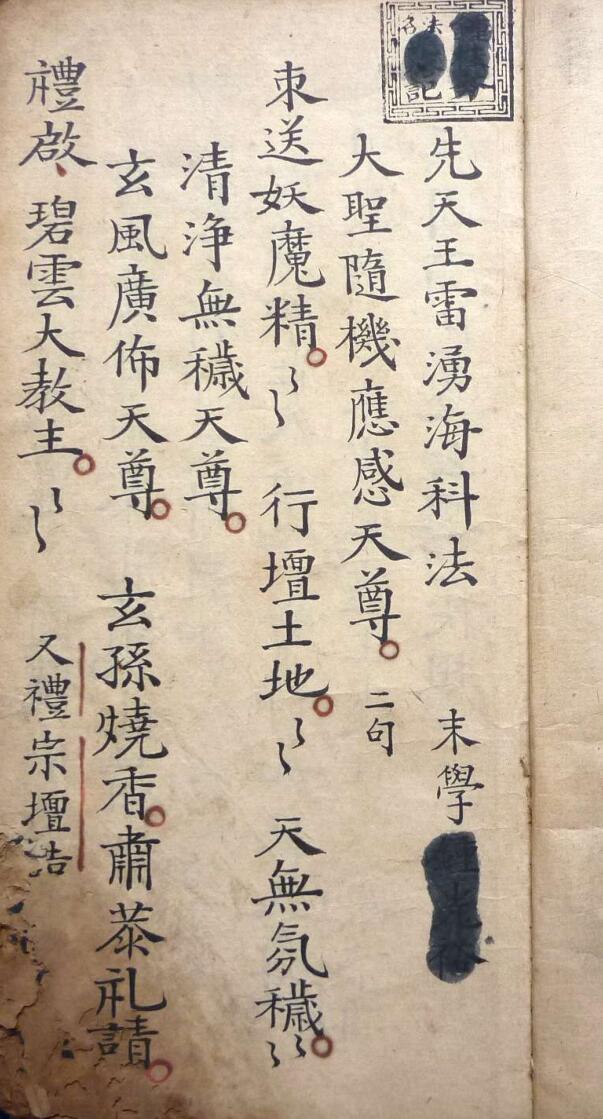 法名 記
先天王雷湧海科法 末學
大聖隨機應感天尊 二句
朿送妖魔精 行壇土地 天無氛穢
清浄無穢天尊
玄風廣佈天尊 玄孫燒香肅恭礼請
禮啟碧雲大教主 又禮宗壇